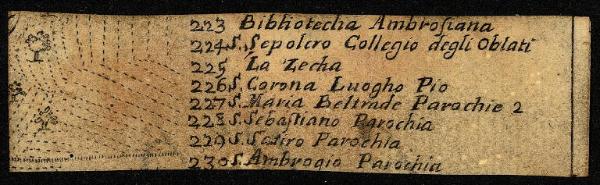 223 Bibliotecha Ambrosiana
224 S. Sepolcro Collegio degli Oblati
225 La Zecha
226 S. Corona Luogho Pio
227 S. Maria Beltrade Parochie 2
228 S. Sebastiano Parochia
229 S. Satiro Parochia
230 S. Ambrogio Parochia